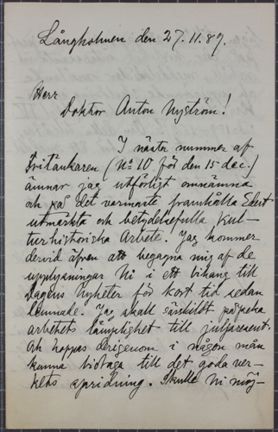 Långholmen den 27.11.89.
Herr
Doktor Anton Nyström!
I nästa nummer af
Fritänkaren (No 10 för den 15 dec.)
ämnar jag utförligt omnämna
och på det varmaste framhålla Edert
utmärkta och betydelsefulla kul-
turhistoriska Arbete. Jag kommer
dervid äfven att begagna mig af de
upplysningar Ni i ett bihang till
Dagens Nyheter för kort tid sedan
lemnade. Jag skall särskildt påpeka
arbetets lämplighet till julpresent
och hoppas derigenom i någon mån
kunna bidraga till det goda ver-
kets spridning. Skulle Ni möj-